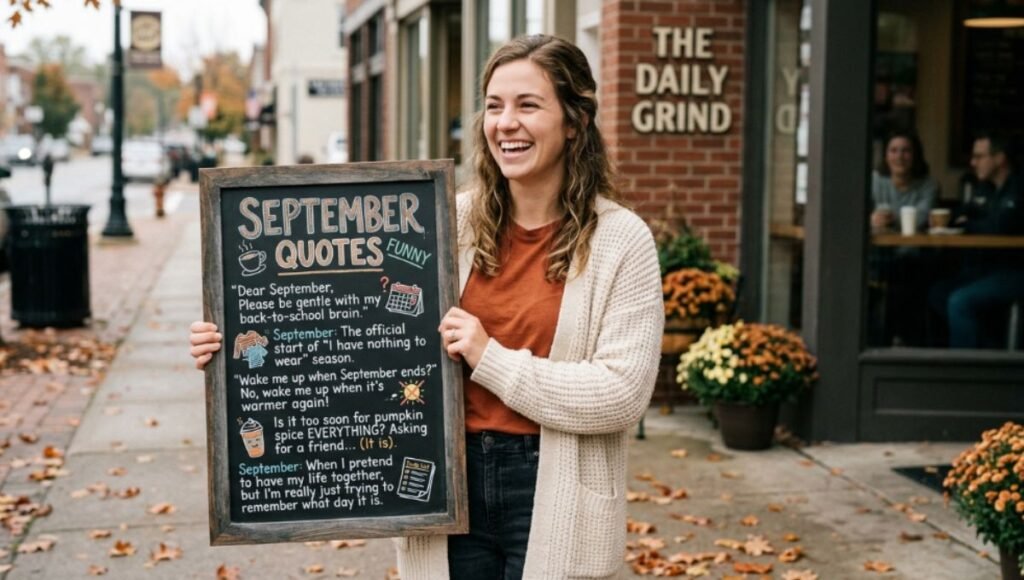 THE
DAILY
GRIND
SEPTEMBER
QUOTES
FUNNY
"Dear September,
Please be gentle with my
back-to-school brain."
?
September: The official
start of "I have nothing to
wear" season.
"Wake me up when September ends?"
No, wake me up when it's
warmer again!
Is it too soon for pumpkin
spice EVERYTHING? Asking
for a friend... (It is).
September: When I pretend
to have my life together,
but I'm really just trying to
remember what day it is.